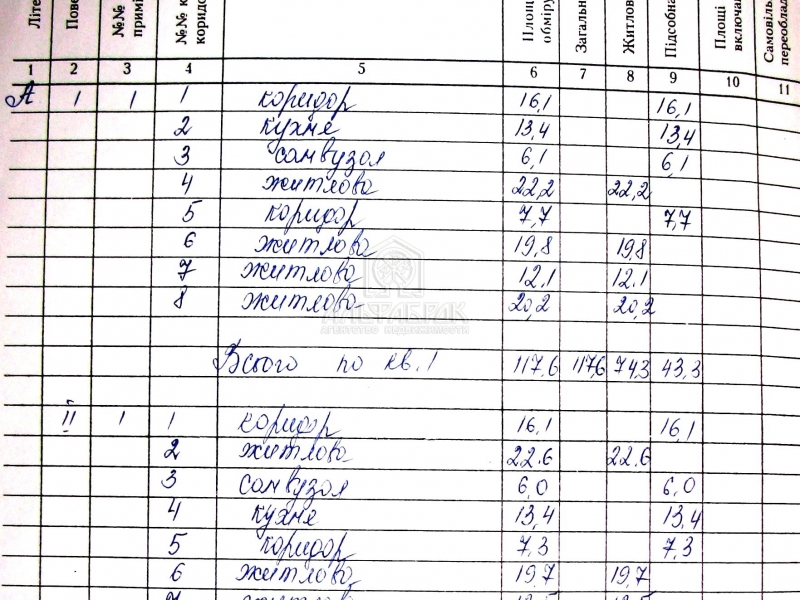 Літе
Пове
№№
приміщ
№№ к
коридо
Площ
обміру
Загальн
Житлов
Підсобна
Площі
включа
Самовіль
переоблад
1 2 3 4 5 6 7 8 9 10 11
А 1 1 1 коридор 16,1 16,1
2 кухня 13,4 13,4
3 санвузол 6,1 6,1
4 житлова 22,2 22,2
5 коридор 7,7 7,7
6 житлова 19,8 19,8
7 житлова 12,1 12.1
8 житлова 20,2 20,2
АЛЬТАБРАК
АГЕНТСТВО НЕДВИЖИМОСТИ
Всього по кв. 1 117.6 117,6 74,3 43,3
II 1 1 коридор 16,1 16,1
2 житлова 22.6 22.6
3 санвузол 6,0 6,0
4 кухня 13,4 13,4
5 коридор 7,3 7,3
6 житлова 19,7 19,7